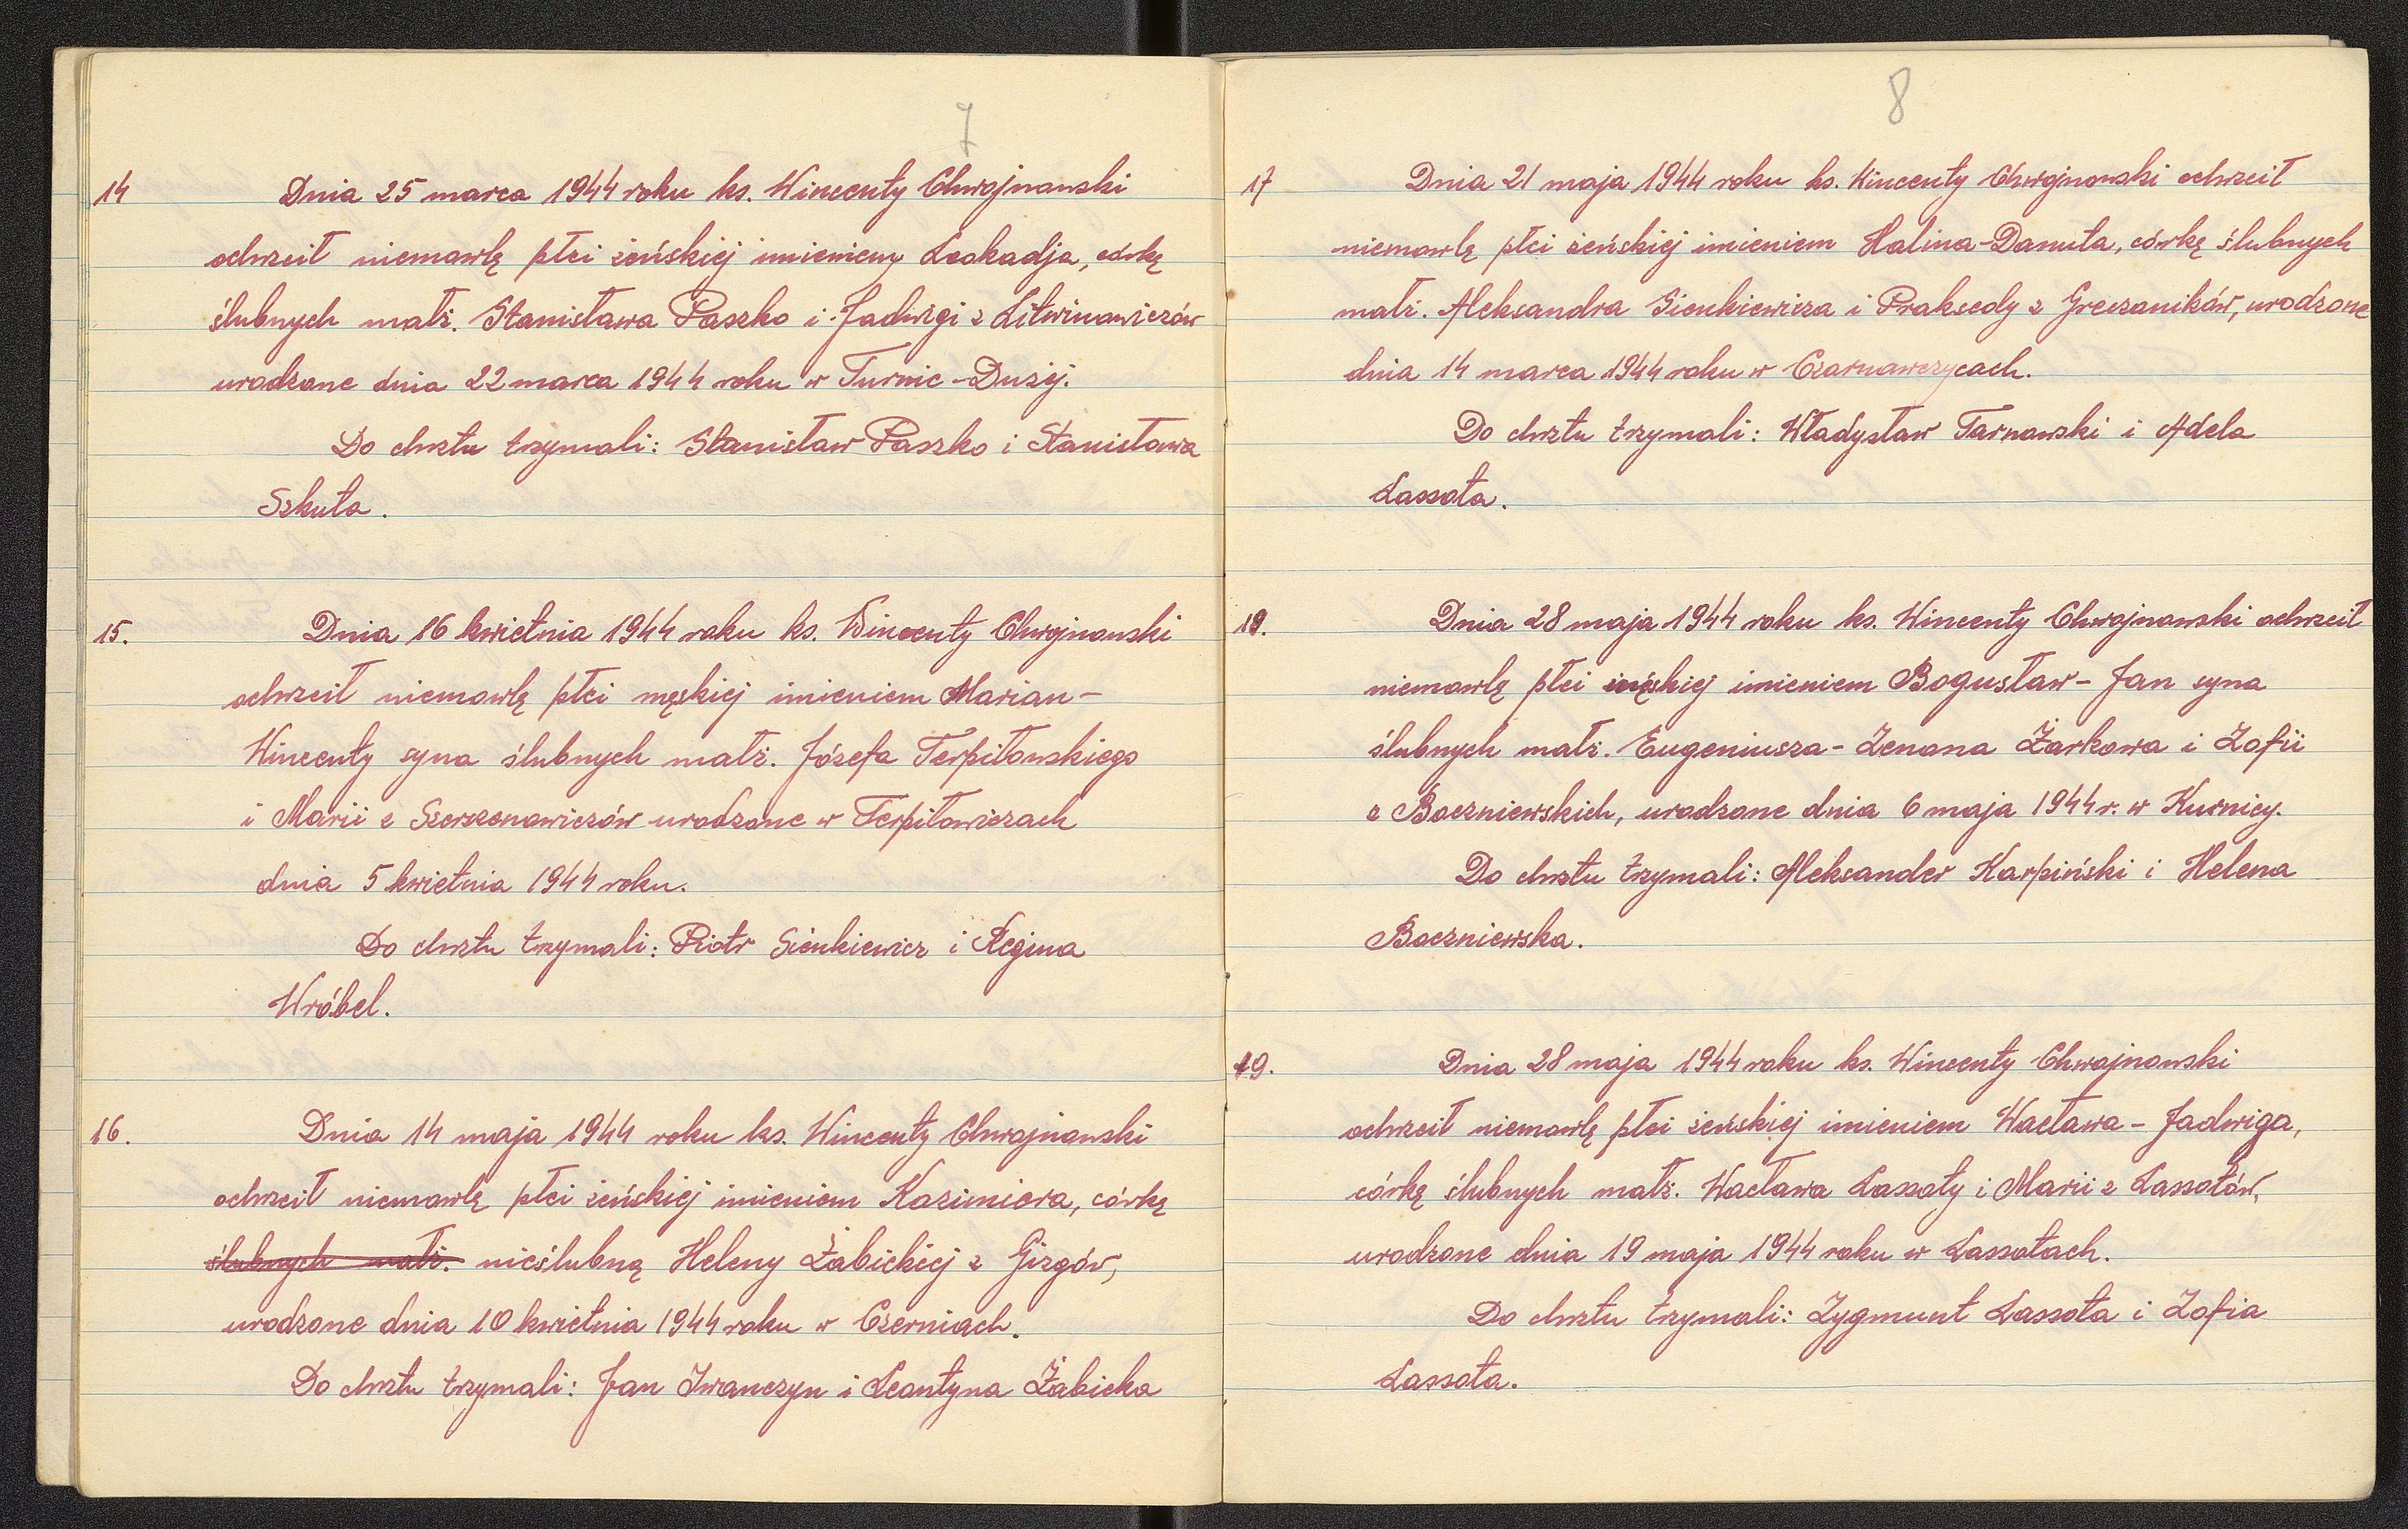 7
14 Dnia 25 marca 1944 roku ks. Wincenty Chwojnowski
ochrzcił niemowlę płci żeńskiej imieniem Leokadja, córkę
ślubnych małż. Stanisława Paszko i Jadwigi z Litwinowiczów
urodzone dnia 22 marca 1944 roku w Turnie-Dużej.
Do chrztu trzymali: Stanisław Paszko i Stanisława
Szkuta.
15. Dnia 16 kwietnia 1944 roku ks. Wincenty Chwojnowski
ochrzcił niemowlę płci męskiej imieniem Marian-
Wincenty syna ślubnych małż. Józefa Terpiłowskiego
i Marii z Szerszenowiczów urodzone w Terpiłowiczach
dnia 5 kwietnia 1944 roku.
Do chrztu trzymali: Piotr Sienkiewicz i Regina
Wróbel.
16. Dnia 14 maja 1944 roku ks. Wincenty Chwojnowski
ochrzcił niemowlę płci żeńskiej imieniem Kazimiera, córkę
ślubnych małż. nieślubną Heleny Żabickiej z Gizgów,
urodzone dnia 10 kwietnia 1944 roku w Czerniach.
Do chrztu trzymali: Jan Iwanczyn i Leontyna Żabicka
8
17 Dnia 21 maja 1944 roku ks. Wincenty Chwojnowski ochrzcił
niemowlę płci żeńskiej imieniem Halina-Danuta, córkę ślubnych
małż. Aleksandra Sienkiewicza i Praksedy z Greczaników, urodzone
dnia 14 marca 1944 roku w Czarnawczycach.
Do chrztu trzymali: Władysław Tarnowski i Adela
Lassota.
18. Dnia 28 maja 1944 roku ks. Wincenty Chwojnowski ochrzcił
niemowlę płci męskiej imieniem Bogusław-Jan syna
ślubnych małż. Eugeniusza-Zenona Żarkowa i Zofii
z Boczniewskich, urodzone dnia 6 maja 1944 r. w Kurnicy.
Do chrztu trzymali: Aleksander Karpiński i Helena
Boczniewska.
19. Dnia 28 maja 1944 roku ks. Wincenty Chwojnowski
ochrzcił niemowlę płci żeńskiej imieniem Wacława-Jadwiga,
córkę ślubnych małż. Wacława Lassoty i Marii z Lassotów,
urodzone dnia 19 maja 1944 roku w Lassotach.
Do chrztu trzymali: Zygmunt Lassota i Zofia
Lassota.